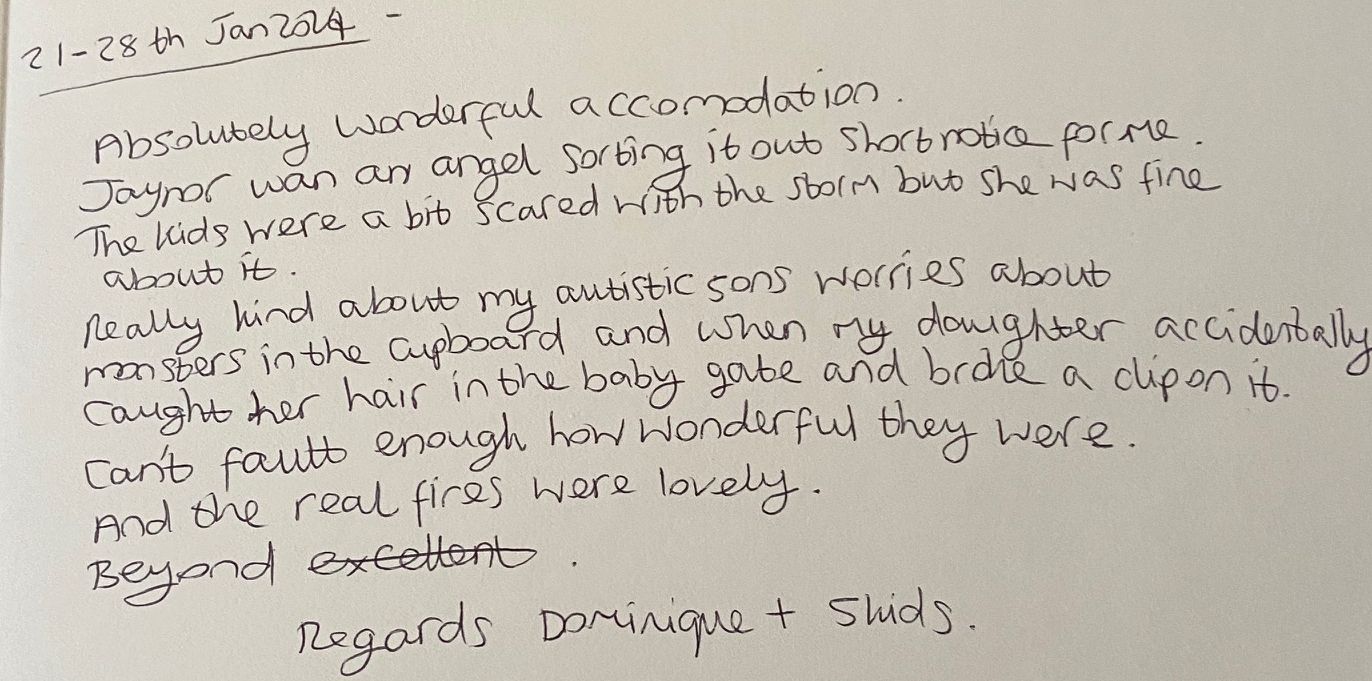 21-28th Jan 2024 -
Absolutely wonderful accomodation.
Jaynor wan an angel sorting it out short notice for me.
The kids were a bit scared with the storm but she was fine
about it.
Really kind about my autistic sons worries about
monsters in the cupboard and when my daughter accidentally
caught her hair in the baby gate and broke a clip on it.
Can't fault enough how wonderful they were.
And the real fires were lovely.
Beyond excellent.
Regards Dominique + 5 kids.